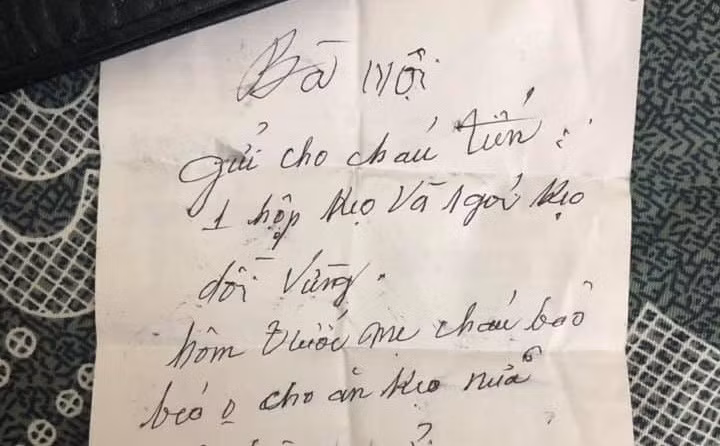 Bà Nội
gửi cho cháu tiến :
1 hộp kẹo Và 1 gói kẹo
dồi Vừng.
hôm trước mẹ cháu bảo
béo o cho ăn kẹo nữa